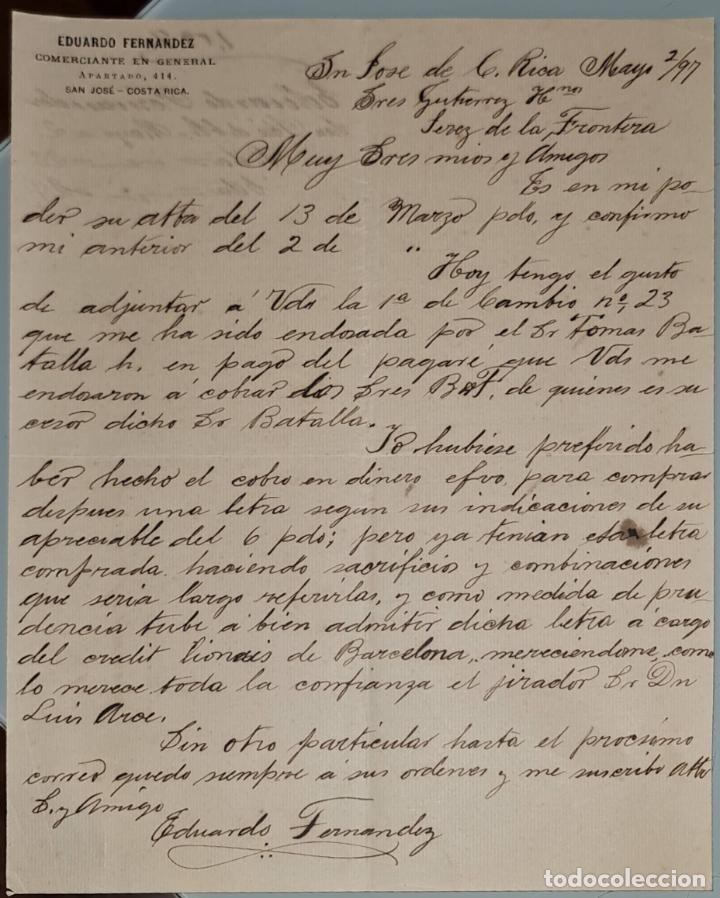 EDUARDO FERNANDEZ
COMERCIANTE EN GENERAL
APARTADO, 414.
SAN JOSÉ – COSTA RICA.
Sn Jose de C. Rica Mayo 2/97
Sres Gutierrez Hnos
Jerez de la Frontera
Muy Sres mios y Amigos
Es en mi po-
der su atta del 13 de Marzo pdo, y confirmo
mi anterior del 2 de "
Hoy tengo el gusto
de adjuntar á Vds la 1a de Cambio no, 23
que me ha sido endosada por el Sr Tomas Ba-
talla h. en pago del pagaré que Vds me
endosaron á cobrar Sres B&T, de quienes es su
cesor dicho Sr Batalla.
Yo hubiese preferido ha-
ber hecho el cobro en dinero efvo, para comprar
despues una letra segun sus indicaciones de su
apreciable del 6 pdo; pero ya tenian esta letra
comprada haciendo sacrificios y combinaciones
que seria largo referirlas, y como medida de pru-
dencia tube á bien admitir dicha letra á cargo
del credit Lionais de Barcelona, mereciendome, como
lo merece toda la confianza el jirador Sr Dn
Luis Arce.
Sin otro particular hasta el procsimo
correo quedo siempre á sus ordenes y me suscribo atto
S. y Amigo
Eduardo Fernandez
todocoleccion.net